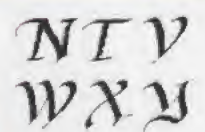 N T V
W X Y